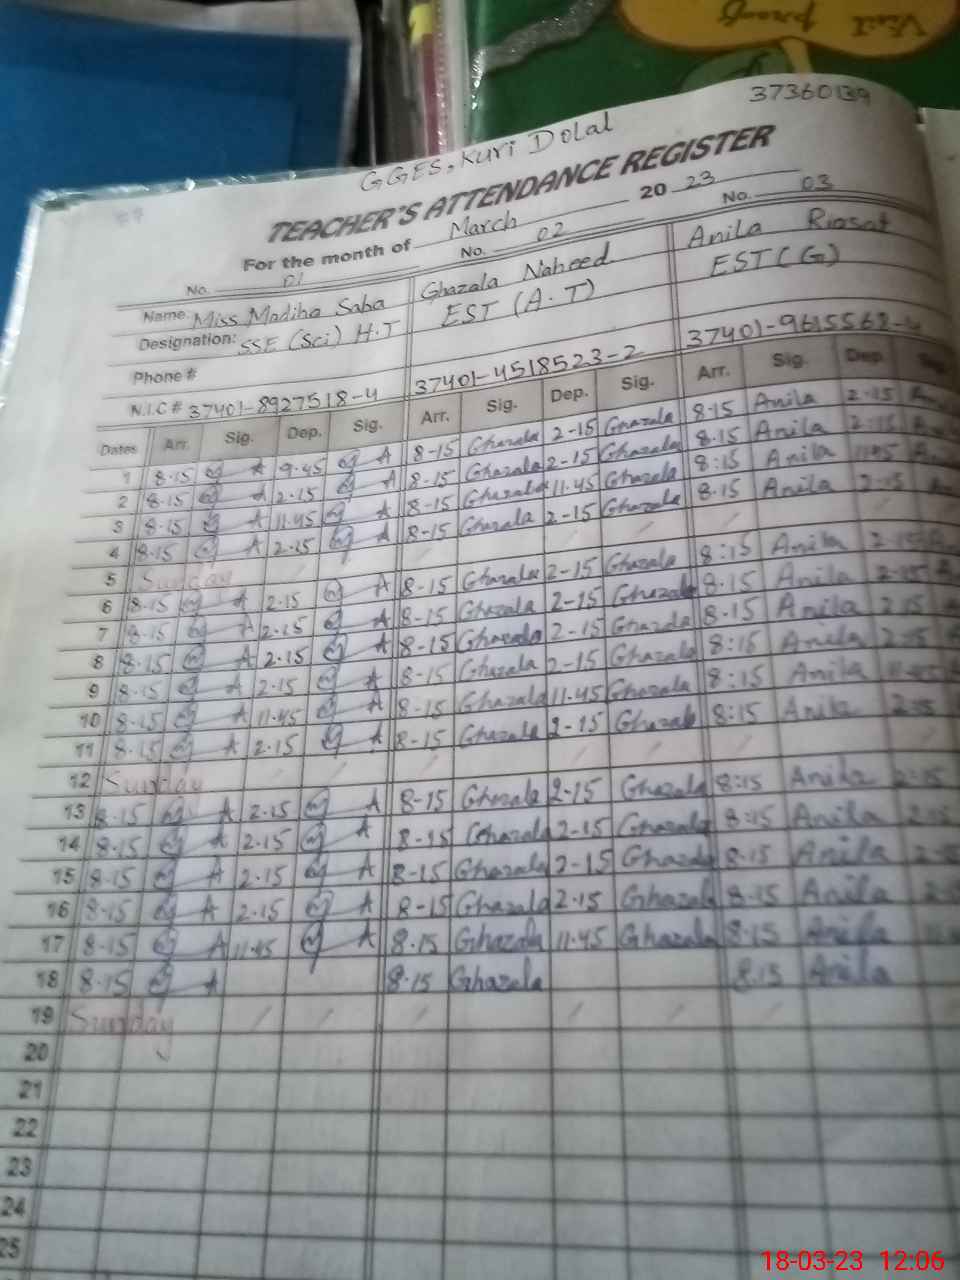 37360139
GGES, Kuri Dolal
TEACHER'S ATTENDANCE REGISTER
For the month of March 2023
No. 01 No. 02 No. 03
Name: Miss Madiha Saba Ghazala Naheed Anila Riasat
Designation: SSE (Sci) H.T EST (A.T) EST (G)
Phone #
N.I.C # 37401-8927518-4 37401-4518523-2 37401-9615562-4
Dates Arr. Sig. Dep. Sig. Arr. Sig. Dep. Sig. Arr. Sig. Dep.
1 8.15 9.45 8-15 Ghazala 2-15 Ghazala 8-15 Anila 2-15
2 8.15 2.15 8-15 Ghazala 2-15 Ghazala 8.15 Anila 2:15
3 8.15 11.45 8-15 Ghazala 11.45 Ghazala 8:15 Anila 11:45
4 8.15 2.15 8-15 Ghazala 2-15 Ghazala 8.15 Anila 2-15
5 Sunday
6 8.15 2.15 8-15 Ghazala 2-15 Ghazala 8:15 Anila 2-15
7 8.15 2.15 8-15 Ghazala 2-15 Ghazala 8.15 Anila 2-15
8 8.15 2.15 8-15 Ghazala 2-15 Ghazala 8-15 Anila 2-15
9 8.15 2.15 8-15 Ghazala 2-15 Ghazala 8:15 Anila 2-15
10 8.15 11.45 8-15 Ghazala 11.45 Ghazala 8:15 Anila 11-45
11 8.15 2.15 8-15 Ghazala 2-15 Ghazala 8:15 Anila 2-15
12 Sunday
13 8.15 2.15 8-15 Ghazala 2-15 Ghazala 8:15 Anila 2-15
14 8.15 2.15 8-15 Ghazala 2-15 Ghazala 8:15 Anila 2-15
15 8.15 2.15 8-15 Ghazala 2-15 Ghazala 8-15 Anila
16 8.15 2.15 8-15 Ghazala 2.15 Ghazala 8.15 Anila
17 8.15 11.45 8.15 Ghazala 11.45 Ghazala 8.15 Anila
18 8.15 8.15 Ghazala 8.15 Anila
19 Sunday
20
21
22
23
24
25
18-03-23 12:06